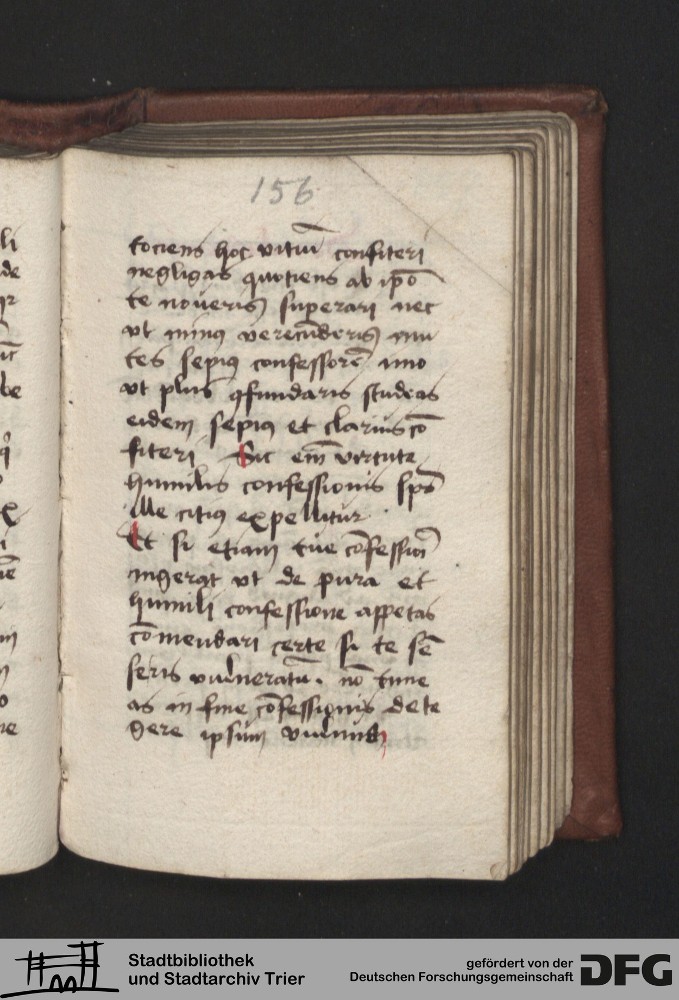 156
tociens hoc vitiū confiteri
negligas quotiens ab ip̄o
te noueris superari nec
vt minus verecūderis mu
tes sepius confessorē ymo
vt plus ꝯfundaris studeas
eidem sepius et clarius cō
fiteri Sic em̄ virtute
humilis confessionis sp̄s
ille citius expellitur
Et si etiam tue cōfessiōi
ingerat vt de pura et
humili confessione appetas
cōmendari certe si te sē
seris vulneratū. nō time
as in fine cōfessionis dete
gere ipsum vulnus
li
de
be
Stadtbibliothek
und Stadtarchiv Trier
gefördert von der
Deutschen Forschungsgemeinschaft
DFG